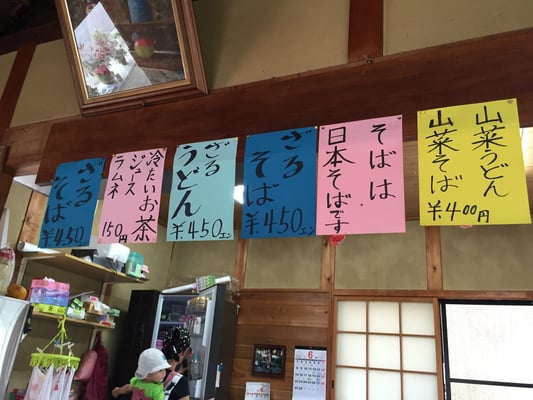 山菜うどん
山菜そば
￥400円
そばは
日本そばです
ざる
そば
￥450エン
ざる
うどん
￥450エン
冷たいお茶
ジュース
ラムネ
150円
ざる
そば
￥450
6